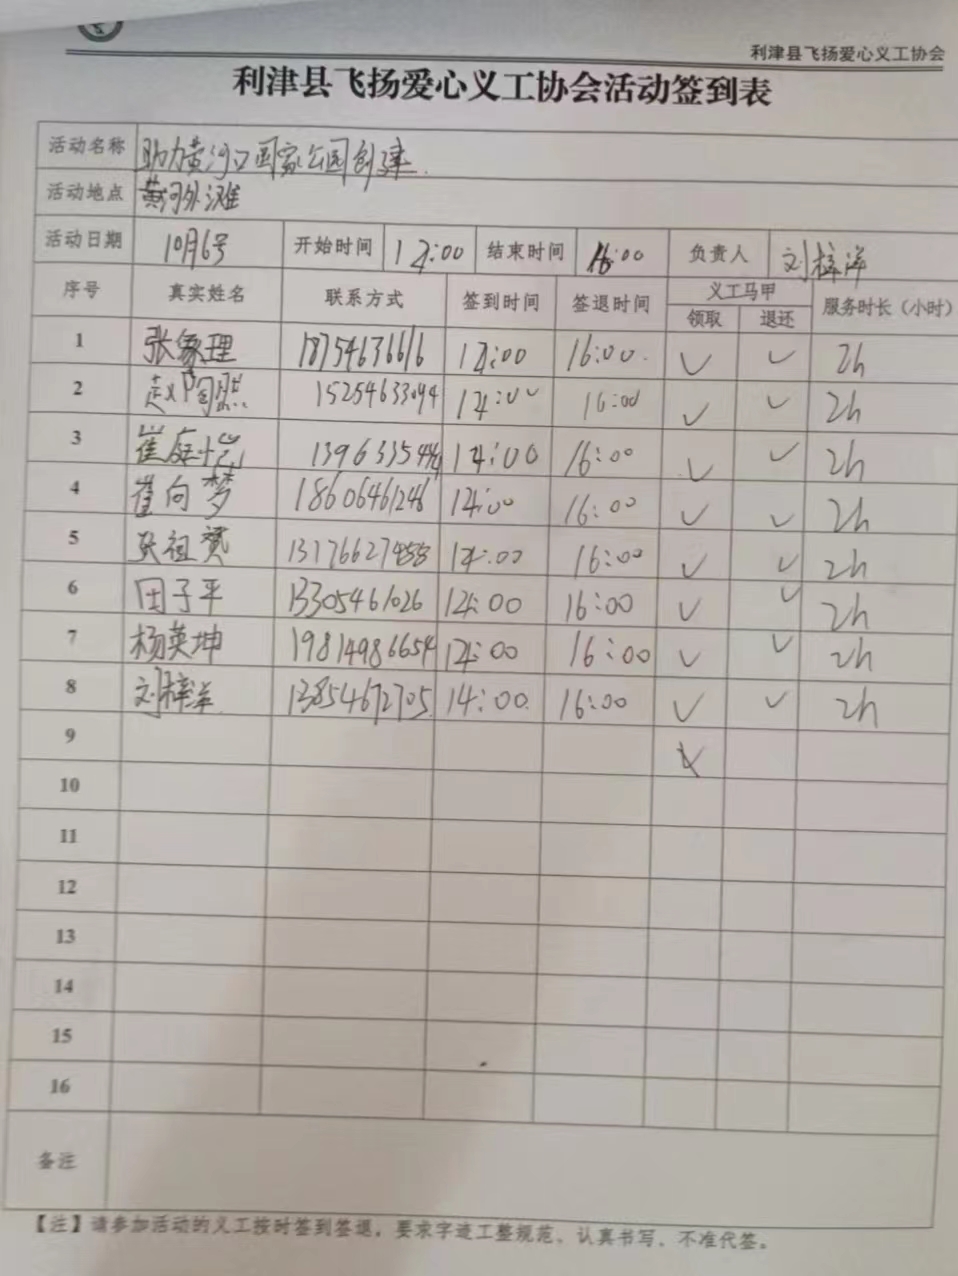 利津县飞扬爱心义工协会
利津县飞扬爱心义工协会活动签到表
活动名称 助力黄河口国家公园创建.
活动地点 黄河外滩
活动日期 10月6号 开始时间 14:00 结束时间 16:00 负责人 刘梓洋
序号 真实姓名 联系方式 签到时间 签退时间 义工马甲 服务时长（小时）
领取 退还
1 张象理 18754636616 14:00 16:00. ✓ ✓ 2h
2 赵 15254633094 14:00 16:00 ✓ ✓ 2h
3 崔庭恺 14:00 16:00 ✓ ✓ 2h
4 崔向梦 18606461246 14:00 16:00 ✓ ✓ 2h
5 张祖赞 14:00 16:00 ✓ ✓ 2h
6 田子平 13305461026 14:00 16:00 ✓ ✓ 2h
7 杨英坤 19814986654 14:00 16:00 ✓ ✓ 2h
8 刘梓洋 13854672705 14:00 16:00 ✓ ✓ 2h
9
10
11
12
13
14
15
16
备注
【注】请参加活动的义工按时签到签退，要求字迹工整规范、认真书写、不准代签。